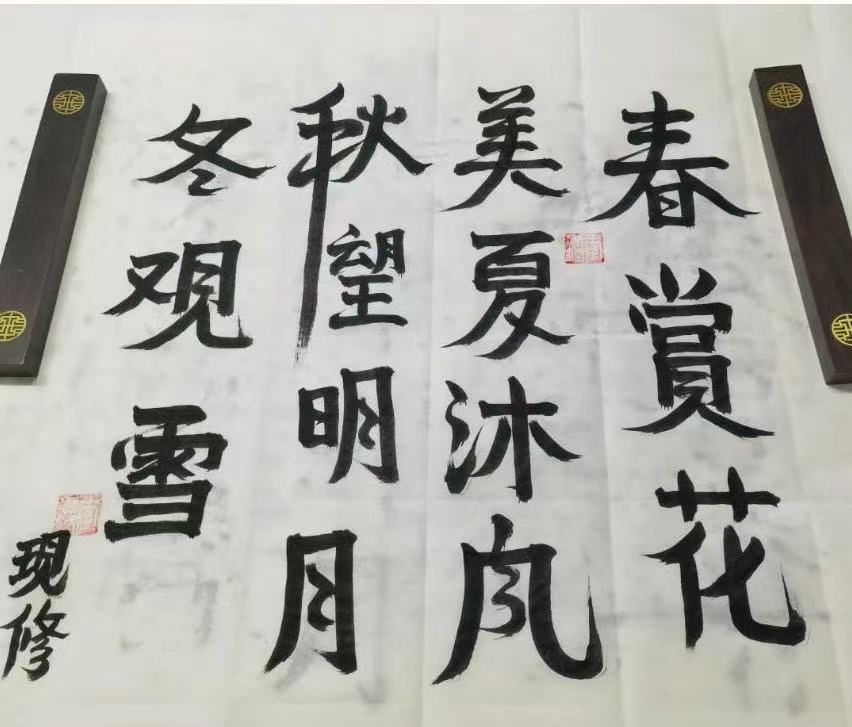 春赏花
美夏沐风
秋望明月
冬观雪
现修